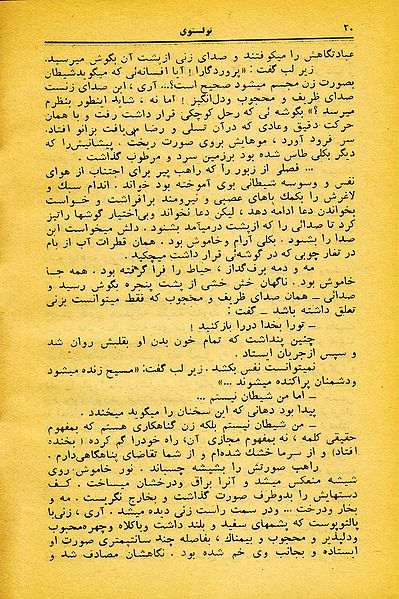 ۲۰
تولستوی
عبادتگاهش را میکوفتند و صدای زنی ازپشت آن بگوش میرسید.
زیر لب گفت : «پروردگارا ! آیا افسانه‌ئی که میگویدشیطان
بصورت زن مجسم میشود صحیح است؟... آری ، این صدای زنست
صدای ظریف و محجوب ودل‌انگیز ! اما نه ، شاید اینطور بنظرم
میرسد ؟» بگوشه ئی که رحل کوچکی قرار داشت رفت و با همان
حرکت دقیق وعادی که درآن تسلی و رضا می‌یافت بزانو افتاد.
سر فرود آورد ، موهایش بروی صورت ریخت . پیشانیش‌را که
دیگر بکلی طاس شده بود برزمین سرد و مرطوب گذاشت .
... فصلی از زبور را که راهب پیر برای اجتناب از هوای
نفس و وسوسه شیطانی بوی آموخته بود خواند . اندام سبك و
لاغرش را بکمك پاهای عصبی و نیرومند برافراشت و خواست
بخواندن دعا ادامه دهد ، لیکن دعا نخواند وبی‌اختیار گوشها راتیز
کرد تا صدائی را که ازپشت درمیآمد بشنود . دلش میخواست این
صدا را بشنود . بکلی آرام وخاموش بود . همان قطرات آب از بام
در تغار چوبی که در گوشه‌ئی قرار داشت میچکید .
مه و دمه برف‌گداز ، حیاط را فرا گرفته بود . همه جا
خاموش بود . ناگهان خش خشی از پشت پنجره بگوش رسید و
صدائی ــ همان صدای ظریف و محجوب که فقط میتوانست بزنی
تعلق داشته باشد ــ گفت :
ــ تورا بخدا دررا بازکنید !
چنین پنداشت که تمام خون بدن او بقلبش روان شد
و سپس ازجریان ایستاد .
نمیتوانست نفس بکشد . زیر لب گفت: «مسیح زنده میشود
ودشمنان پراکنده میشوند ...»
ــ اما من شیطان نیستم ...
پیدا بود دهانی که این سخنان را میگوید میخندد .
ــ من شیطان نیستم بلکه زن گناهکاری هستم که بمفهوم
حقیقی کلمه ، نه بمفهوم مجازی آن، راه خودرا گم کرده ( بخنده
افتاد) و از سرما خشك شده‌ام و از شما تقاضای پناهگاهی‌دارم .
راهب صورتش را بشیشه چسباند . نور خاموش روی
شیشه منعکس میشد و آنرا براق ودرخشان میساخت . کف
دستهایش را بدوطرف صورت گذاشت و بخارج نگریست . مه و
بخار ودرخت ... ودر سمت راست زنی دیده میشد . آری ، زنی‌با
پالتوپوست که پشمهای سفید و بلند داشت وباکلاه وچهره‌محبوب
ودلپذیر و محجوب و بیمناك ، بفاصله چند سانتیمتری صورت او
ایستاده و بجانب وی خم شده بود . نگاهشان مصادف شد و